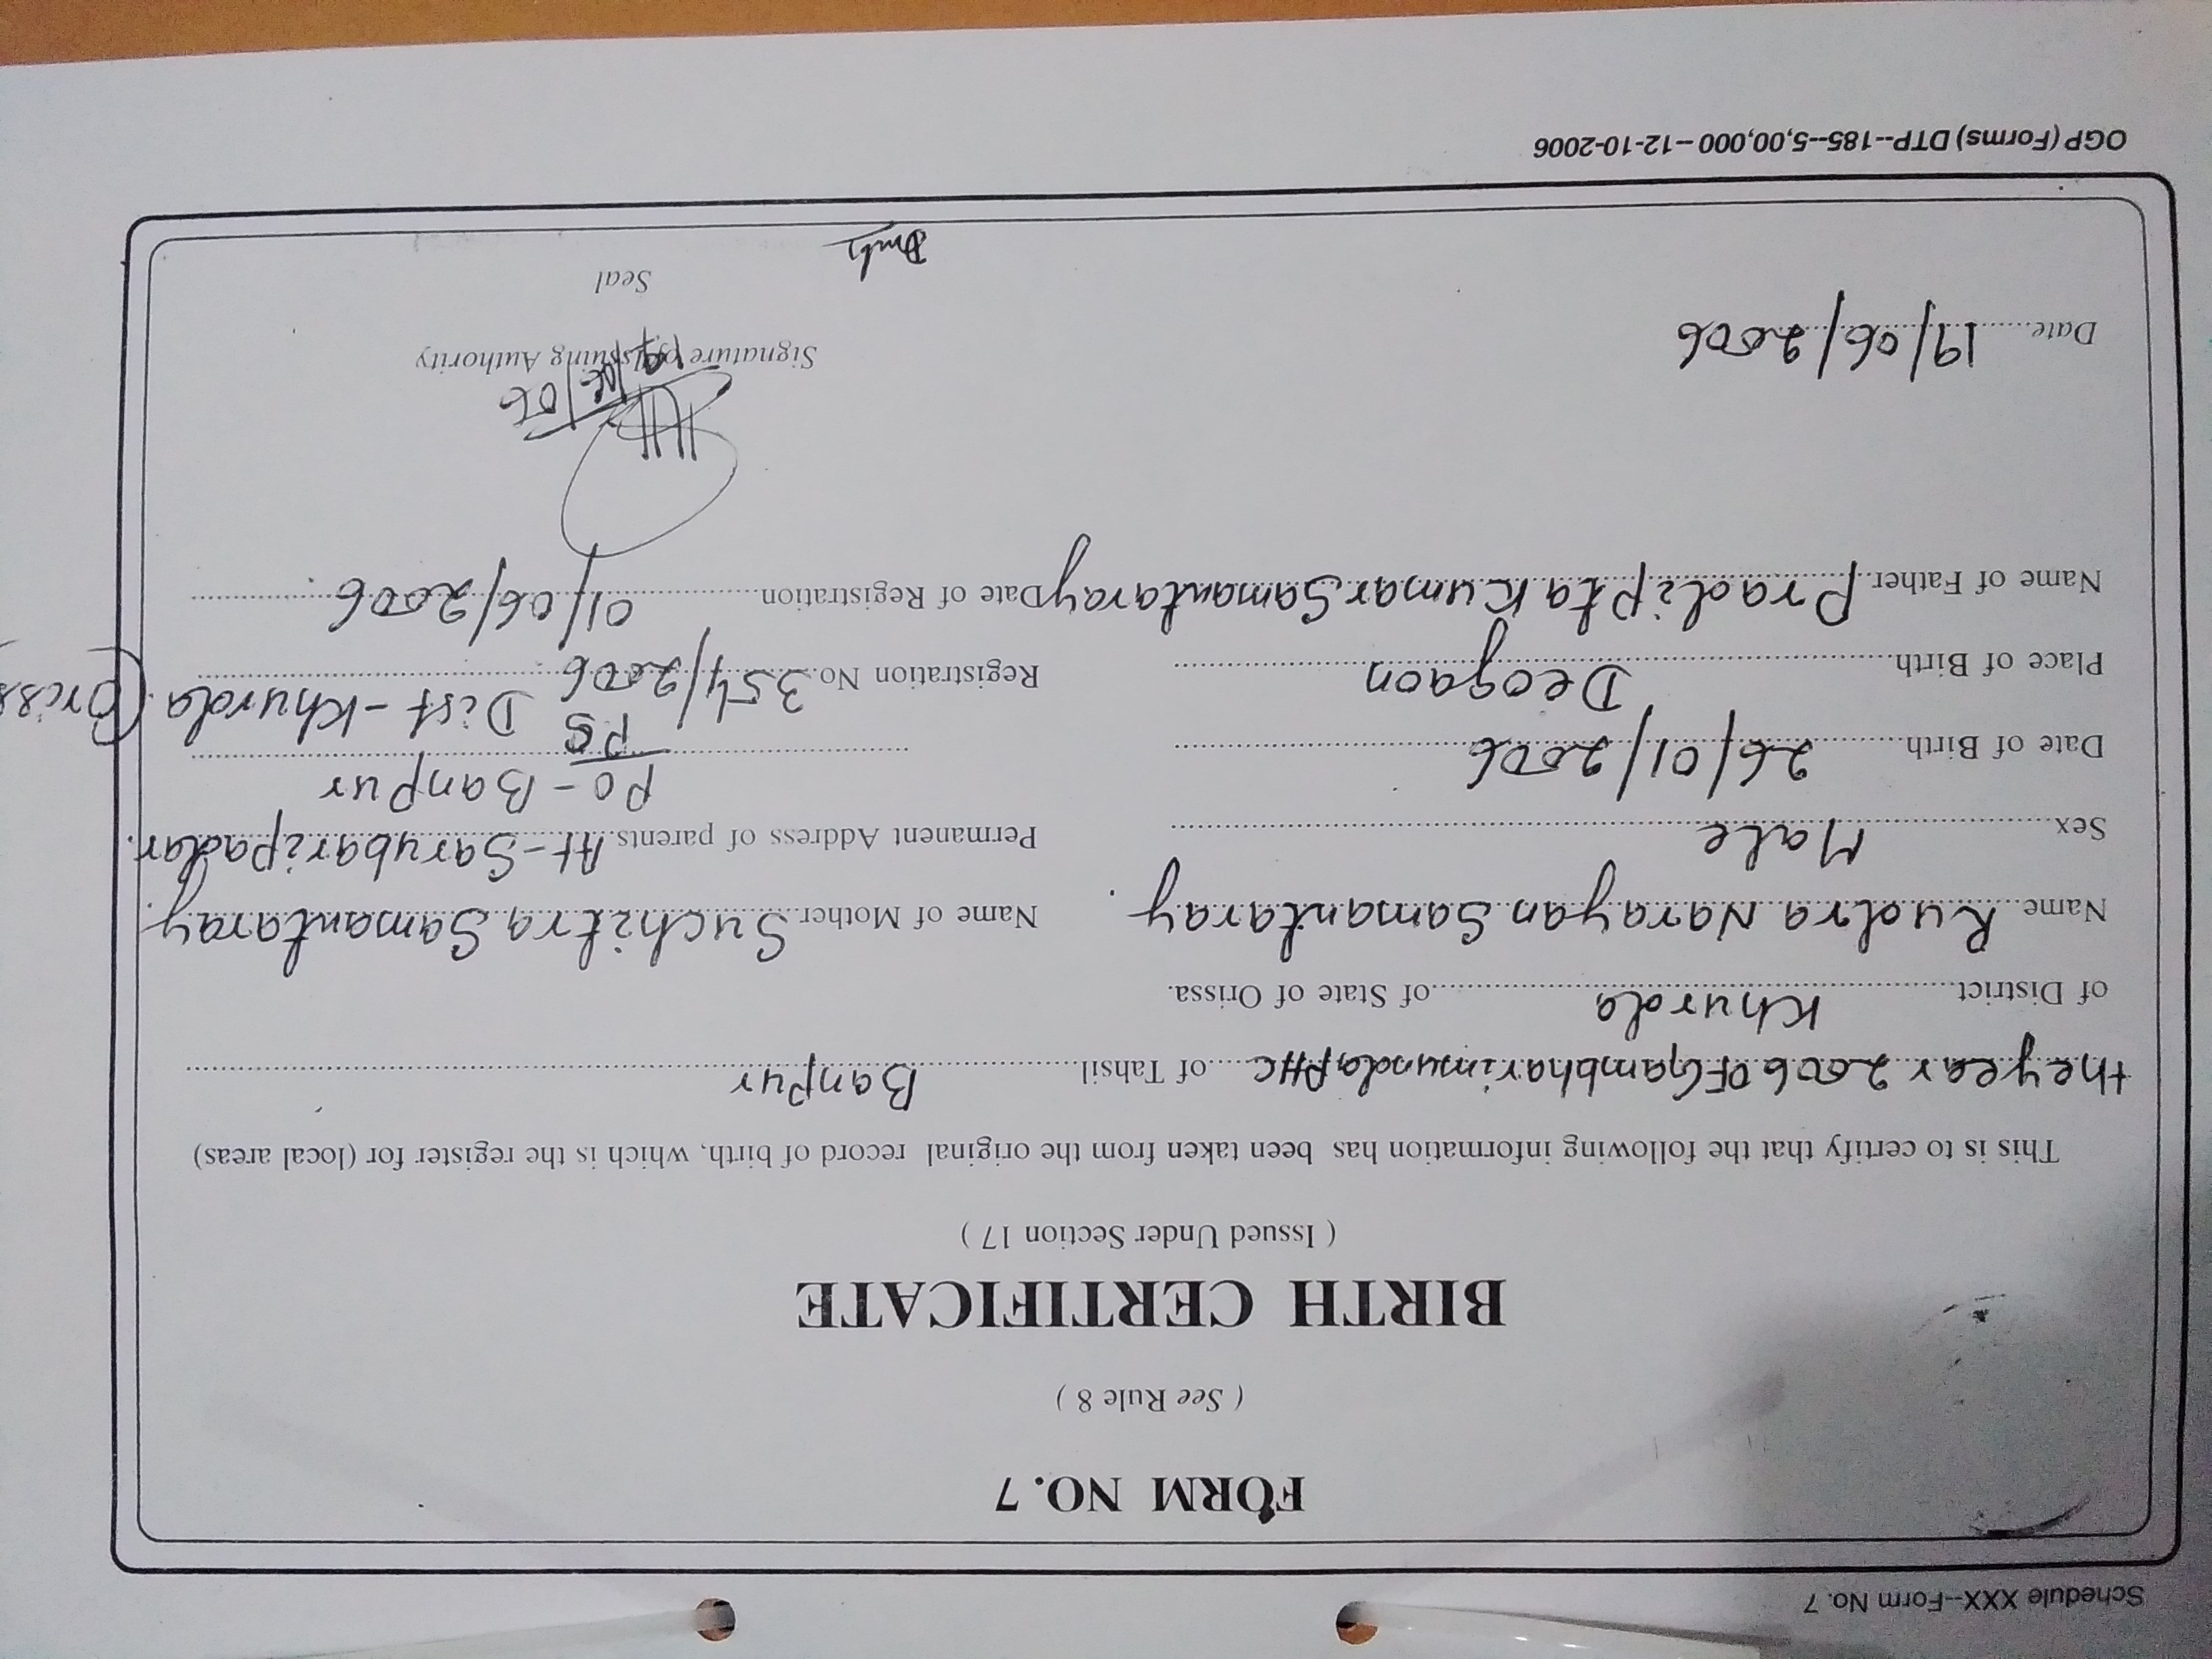 Schedule XXX--Form No. 7
FORM NO. 7
( See Rule 8 )
BIRTH CERTIFICATE
( Issued Under Section 17 )
This is to certify that the following information has been taken from the original record of birth, which is the register for (local areas)
the year 2006 OF Gambharimunda PHC of Tahsil Banpur
of District Khurda of State of Orissa.
Name Rudra Narayan Samantaray. Name of Mother Suchitra Samantaray.
Sex Male Permanent Address of parents At-Sarubaripadar.
PO-Banpur
Date of Birth 26/01/2006 PS Dist-Khurda (Oriss
Place of Birth Deogaon Registration No. 354/2006
Name of Father Pradipta Kumar Samantaray Date of Registration 01/06/2006
19/06/06
Date 19/06/2006 Signature of Issuing Authority
Seal
OGP (Forms) DTP--185--5,00,000--12-10-2006